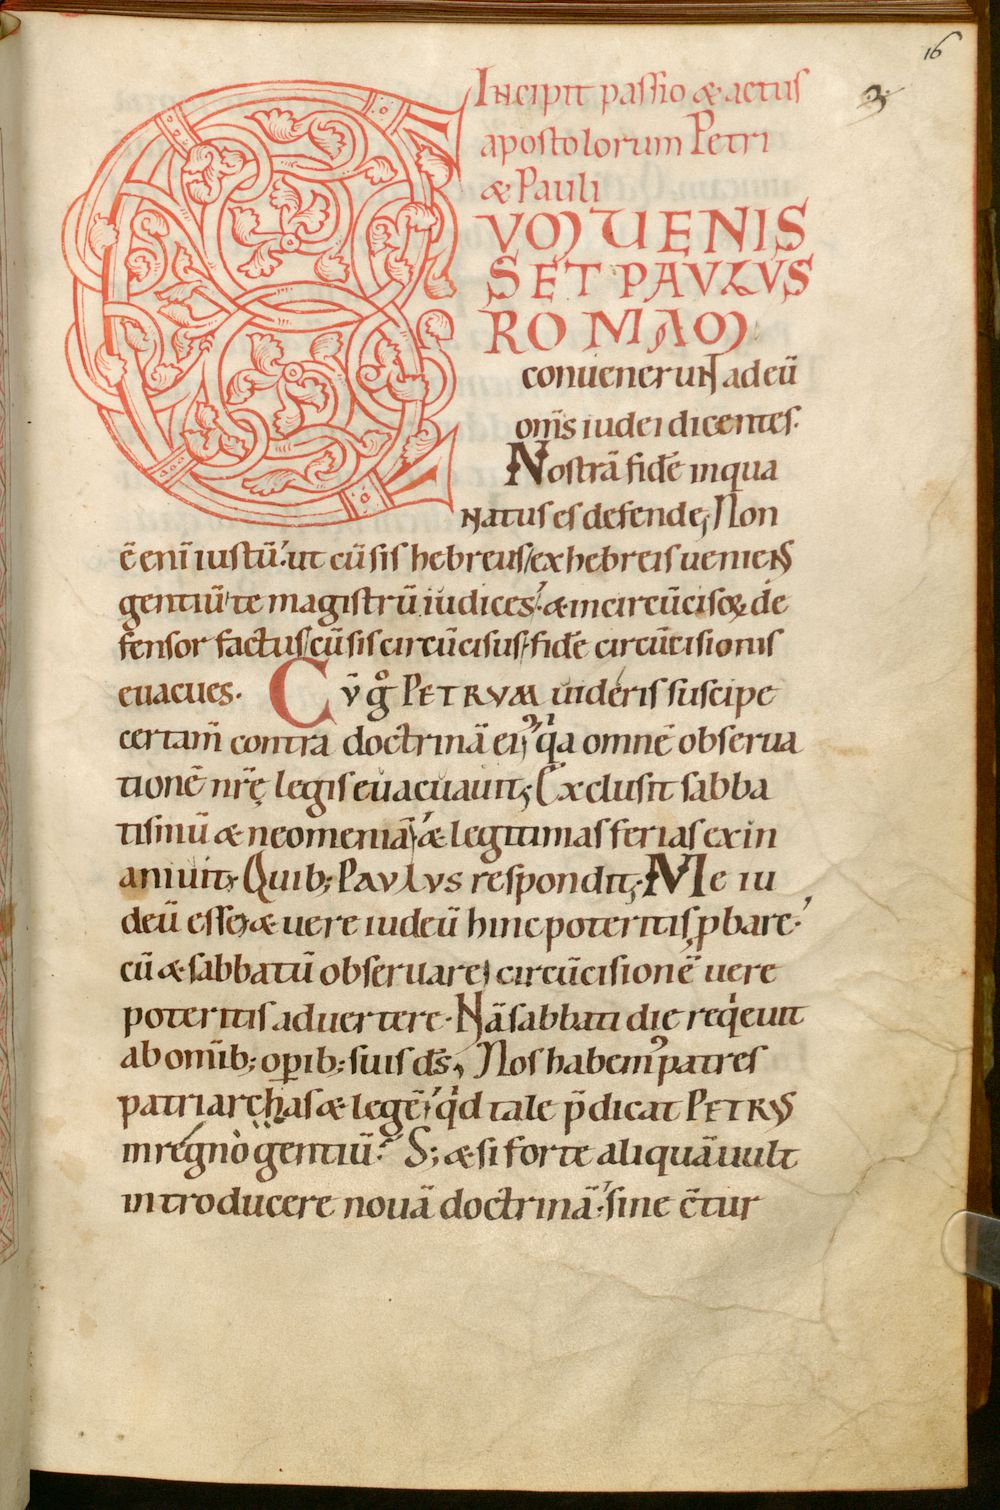 16
3
Incipit passio & actus
apostolorum Petri
& Pauli
CUM UENIS
SET PAULUS
ROMAM
conuenerunt ad eū
om̄s iudei dicentes.
Nostrā fidē in qua
natus es defende; Non
ē eni̅ iustū. ut cū sis hebreus / ex hebreis ueniens
gentiū te magistrū iudices. & incircūcisoꝝ de
fensor factus / cū sis circūcisus, fidē circūcisionis
euacues. Cū g̊ PETRUM uideris suscipe
certam̄ contra doctrinā eiꝰ, qͥa omnē obserua
tionē nrę̄ legis euacuauit; Exclusit sabba
tismū & neomeniā, & legitimas ferias exin
aniuit; Quib; PAULUS respondit; Me iu
deū esse & uere iudeū hinc poteritis ꝓbare.
cū & sabbatū obseruare, circūcisionē uere
poteritis aduertere. Nā sabbati die reqͥeuit
ab om̄ib; oꝑib; suis ds̄, Nos habemꝰ patres
patriarchas & legē, qͥd tale p̄dicat PETRUS
in regno gentiū. S; & si forte aliquā uult
introducere nouā doctrinā. sine c̄tur